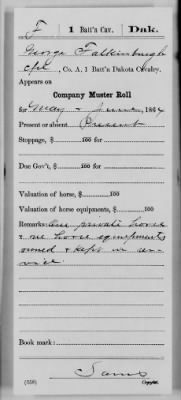 F | 1 Batt'n Cav. | Dak.
George Falkinburgh
Cpl, Co. A, 1 Batt'n Dakota Cavalry.
Appears on
Company Muster Roll
for May & June, 1864.
Present or absent Present
Stoppage, $ 100 for
Due Gov't, $ 100 for
Valuation of horse, $ 100
Valuation of horse equipments, $ 100
Remarks: One private horse
& no horse equipments
owned & kept in ser-
vice.
Book mark:
James
(358) Copyist.